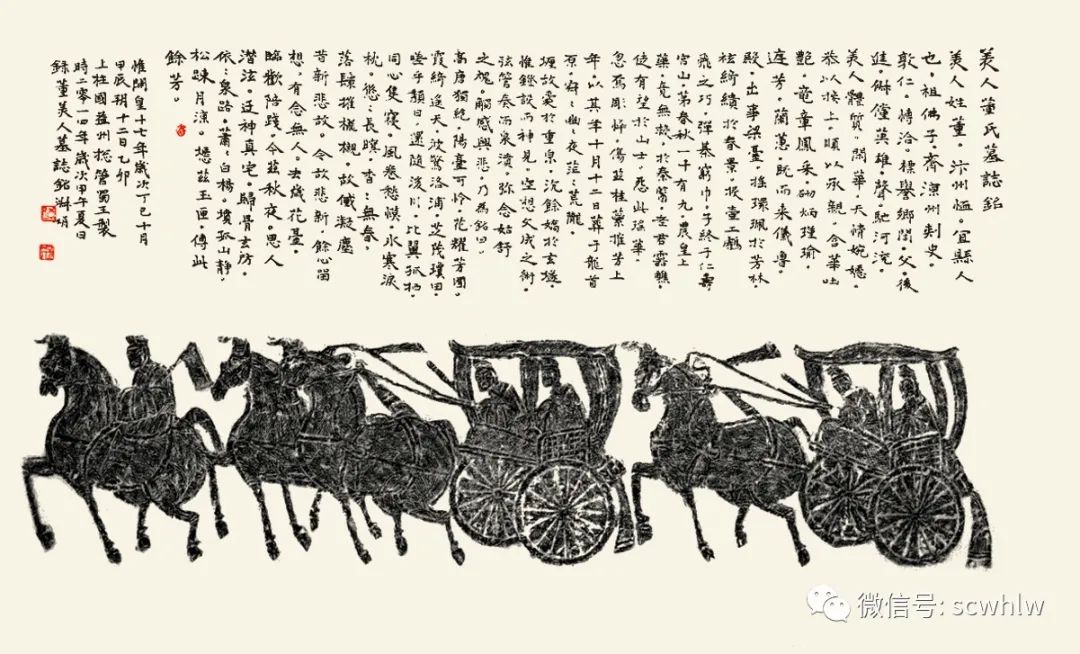 美人董氏墓誌銘
美人姓董。汴州恤。宜縣人
也。祖佛子。齊涼州刺史。
敦仁。博洽。標譽鄉閭。父後
進。俶儻英雄。聲馳河渷。
美人體質。閑華。天情婉嫕。
恭以接上。順以承親。含華吐
艷。竜章鳳采。砌炳瑾瑜。
庭芳。蘭蕙。既而來儀魯。
殿。出事梁臺。搖環珮於芳林。
袨綺繢於春景。投壺工鶴
飛之巧。彈棊窮巾。子終于仁壽
宮山。第春秋一千有九。農皇上
藥。竟無救。於秦醫。老君靈醮。
徒有望於山士。怨此瑤華
忽焉彫悴。傷茲桂蘂摧芳上
年。以其年十月十二日葬于龍首
原。寂ミ幽夜。茫ミ荒隴。
埋故愛於重泉。沉餘嬌於玄燧。
惟鐙設而神見。空想文成之術。
弦管奏而泉濆。弥念姑舒
之魂。觸感興悲。乃為銘曰。
高唐獨絕。陽臺可怜。花耀芳囿。
霞綺遙天。波驚洛浦。芝茂瓊田。
嗟乎頹日。還隨湲川。比翼孤栖。
同心隻寢。風卷愁慔。氷寒淚
枕。悠ミ長暝。杳ミ無春。
落鬟摧櫬。故黛凝塵
昔新悲故。今故悲新。餘心留
想。有念無人。去歲花臺。
臨歡陪踐。今茲秋夜。思人
潛泫。迋神真宅。歸骨玄房。
依ミ泉路。蕭ミ白楊。墳孤山靜。
松踈月涼。瘞茲玉匣。傳此
餘芳。
惟開皇十七年歲次丁巳十月
甲辰朔十二日乙卯
上柱國益州捴管蜀王製
時二零一四年歲次甲午夏日
錄董美人墓誌銘
微信号: scwhlw